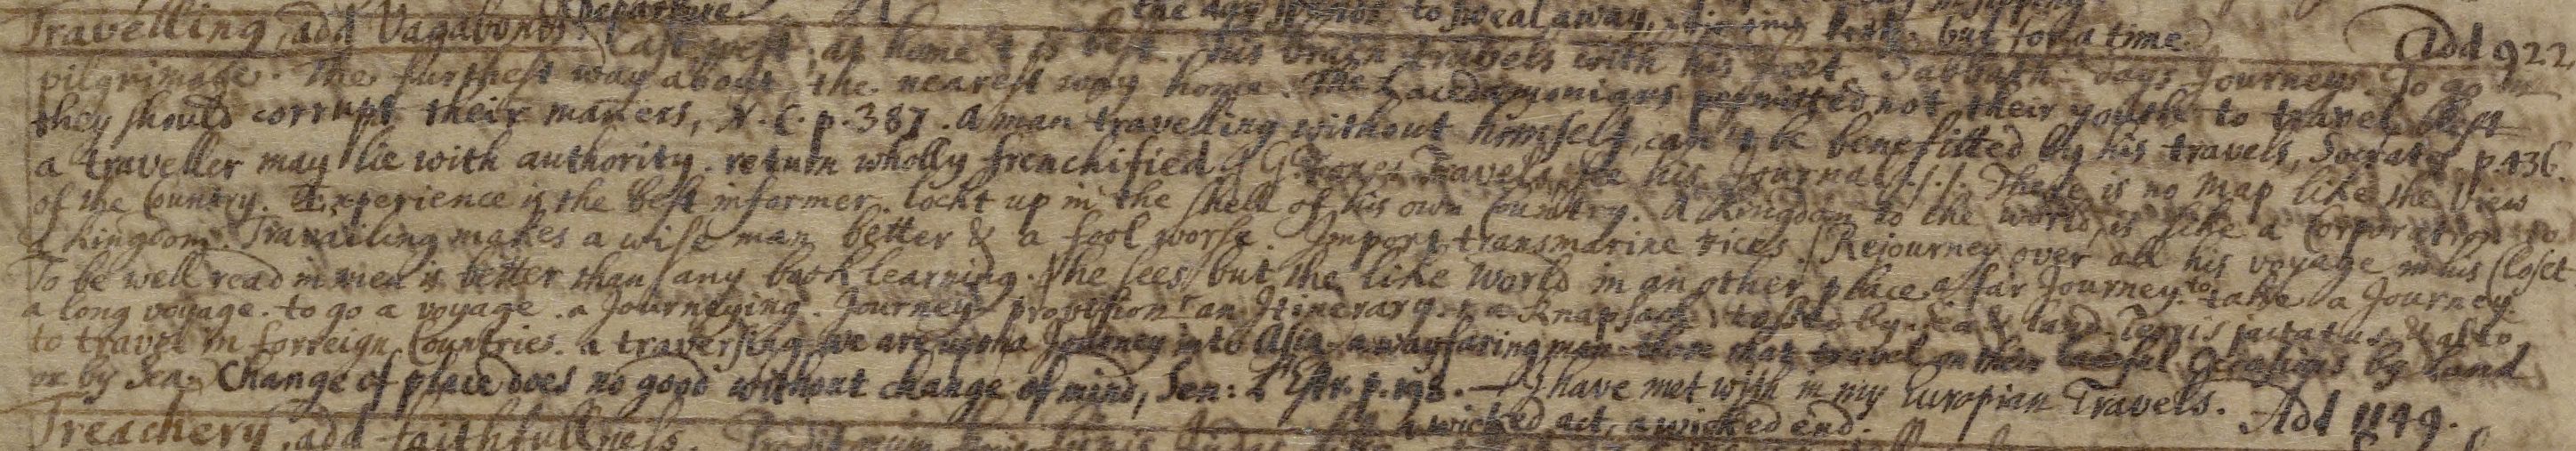 the day to sweal away, but for a time.
Travelling, add Vagabonds. Departure. East west, at home 't is best. his brain travels with his feet. Sabbath-days Journeys. To go in Add 922,
pilgrimage. The furthest way about, the nearest way home. The Lacedæmonians permitted not their youth to travel, lest
they should corrupt their maners, N. C. p. 387. A man travelling without himself, can't be benefitted by his travels, Socrates, p. 436.
a traveller may lie with authority. return wholly frenchified. G. Foxes Travels, see his Journal. There is no Map like the View
of the Country. Experience is the best informer. lockt up in the shell of his own Country. a Kingdom to the world, is like a Corporation to
a Kingdom. Travailing makes a wise man better & a fool worse. Import transmarine vices. Rejourney over all his voyage in his Closet
To be well read in men is better than any book learning. he sees but the like World in an other place. a far Journey. to take a Journey.
a long voyage. to go a voyage. a Journeying. Journey-provision. an Itinerary. a Knapsack. tossed by sea & land. Terris jactatus & alto,
to travel in forreign Countries. a traversing. we are upon a Journey into Asia. a wayfaring man. those that travel on their lawful Occasions by Land
or by Sea. Change of place does no good without change of mind, Sen: L'Estr. p. 198. — I have met with in my Europian Travels. Add 1149.
Treachery, add faithfullness. a wicked act, a wicked end.